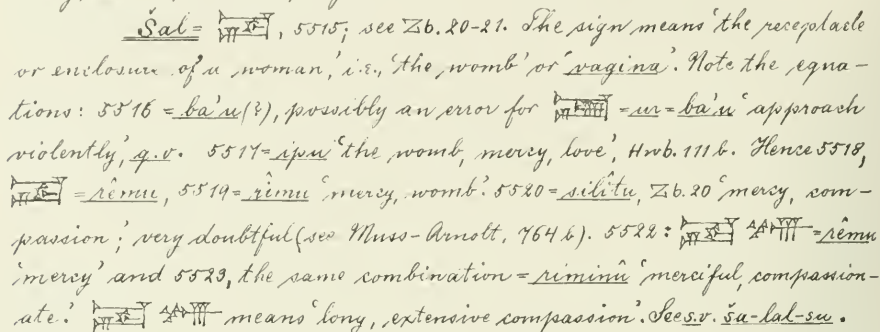 Šal = , 5515; see Zb. 20-21. The sign means 'the receptacle
or enclosure of a woman,' i.e., 'the womb' or 'vagina'. Note the equa-
tions: 5516 = ba'u(?), possibly an error for = ur = ba'u 'approach
violently', q.v. 5517 = ipu 'the womb, mercy, love', Hwb. 111 b. Hence 5518,
= rêmu, 5519 = rîmu 'mercy, womb'. 5520 = silîtu, Zb. 20 'mercy, com-
passion'; very doubtful (see Muss-Arnolt, 764 b). 5522: = rêmu
'mercy' and 5523, the same combination = riminû 'merciful, compassion-
ate.' means 'long, extensive compassion'. See s.v. šu-lal-su.